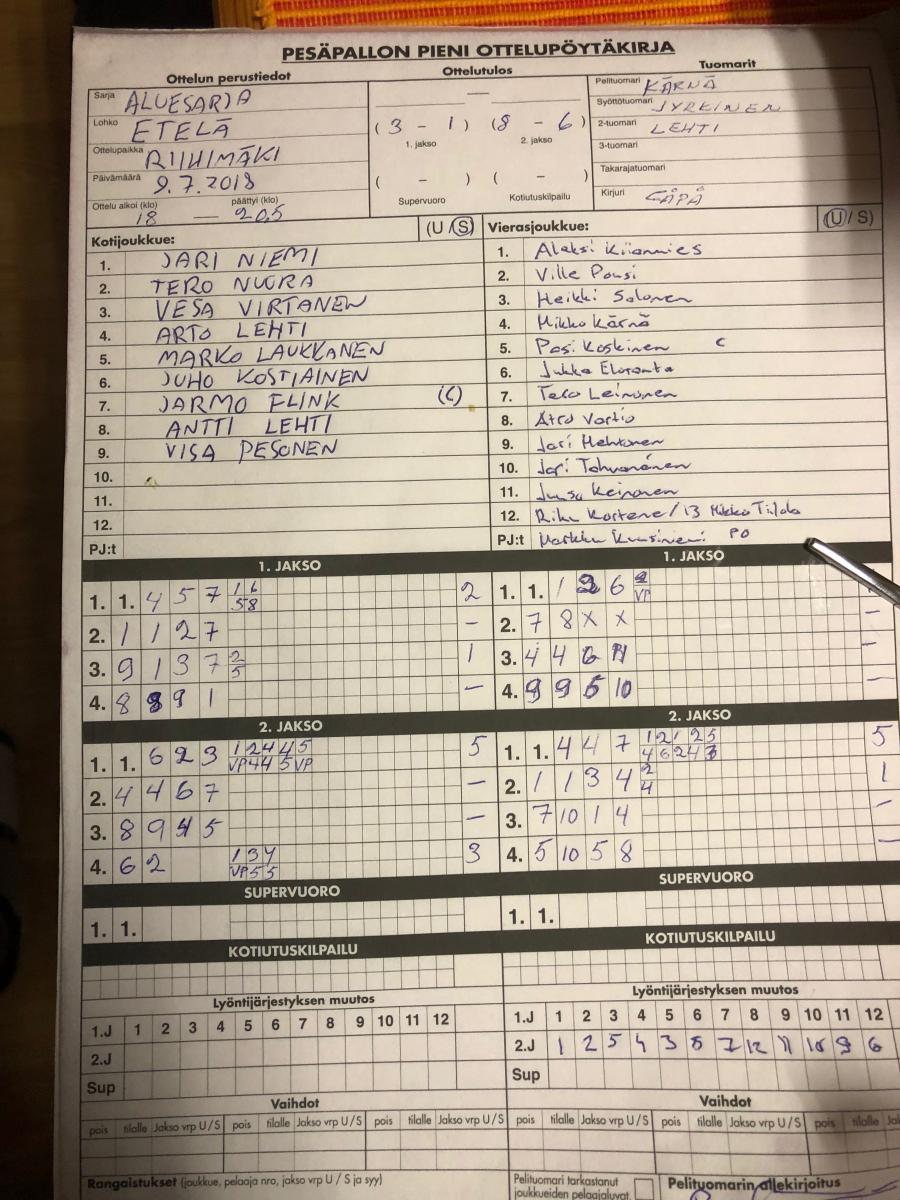 PESÄPALLON PIENI OTTELUPÖYTÄKIRJA
Ottelun perustiedot
Sarja ALUESARJA
Lohko ETELÄ
Ottelupaikka RIIHIMÄKI
Päivämäärä 9.7.2018
Ottelu alkoi (klo) päättyi (klo)
18 — 20.5
Ottelutulos
—
(3 - 1) (8 - 6)
1. jakso 2. jakso
( - ) ( - )
Supervuoro Kotiutuskilpailu
Tuomarit
Pelituomari KÄRNÄ
Syöttötuomari JYRKINEN
2-tuomari LEHTI
3-tuomari
Takarajatuomari
Kirjuri
Kotijoukkue: (U / S)
1. JARI NIEMI
2. TERO NUORA
3. VESA VIRTANEN
4. ARTO LEHTI
5. MARKO LAUKKANEN
6. JUHO KOSTIAINEN
7. JARMO FLINK (C)
8. ANTTI LEHTI
9. VISA PESONEN
10.
11.
12.
PJ:t
Vierasjoukkue: (U / S)
1. Aleksi Kiianmies
2. Ville Pousi
3. Heikki Salonen
4. Mikko Kärnä
5. Pasi Koskinen C
6. Jukka Eloranta
7. Tero Leinonen
8. Atro Vartio
9. Jari Hehtonen
10. Jari Tahvanainen
11. Keinonen
12. Riku / 13 Mikko
PJ:t Markku PO
1. JAKSO
1. 1. 4 5 7 1 6 2
5 8
2. 1 1 2 7 —
3. 9 1 3 7 2 1
5
4. 8 8 9 1 —
2. JAKSO
1. 1. 6 2 3 1 2 4 4 5 5
VP 4 4 5 VP
2. 4 4 6 7 —
3. 8 9 4 5 —
4. 6 2 1 3 4 3
VP 5 5
SUPERVUORO
1. 1.
KOTIUTUSKILPAILU
Lyöntijärjestyksen muutos
1.J 1 2 3 4 5 6 7 8 9 10 11 12
2.J
Sup
Vaihdot
pois tilalle Jakso vrp U / S pois tilalle Jakso vrp U / S pois tilalle Jakso vrp U / S
Rangaistukset (joukkue, pelaaja nro, jakso vrp U / S ja syy)
1. JAKSO
1. 1. 1 6
VP
2. 7 8 X X —
3. 4 4 6 —
4. 9 9 5 10 —
2. JAKSO
1. 1. 4 4 7 1 2 1 2 5 5
4 6 2 4
2. 1 1 3 4 2 1
4
3. 7 10 1 4 —
4. 5 10 5 8 —
SUPERVUORO
1. 1.
KOTIUTUSKILPAILU
Lyöntijärjestyksen muutos
1.J 1 2 3 4 5 6 7 8 9 10 11 12
2.J 1 2 5 4 3 8 7 12 11 10 9 6
Sup
Vaihdot
pois tilalle Jakso vrp U / S pois tilalle Jakso vrp U / S pois tilalle
Pelituomari tarkastanut
joukkueiden pelaajaluvat.
Pelituomarin allekirjoitus